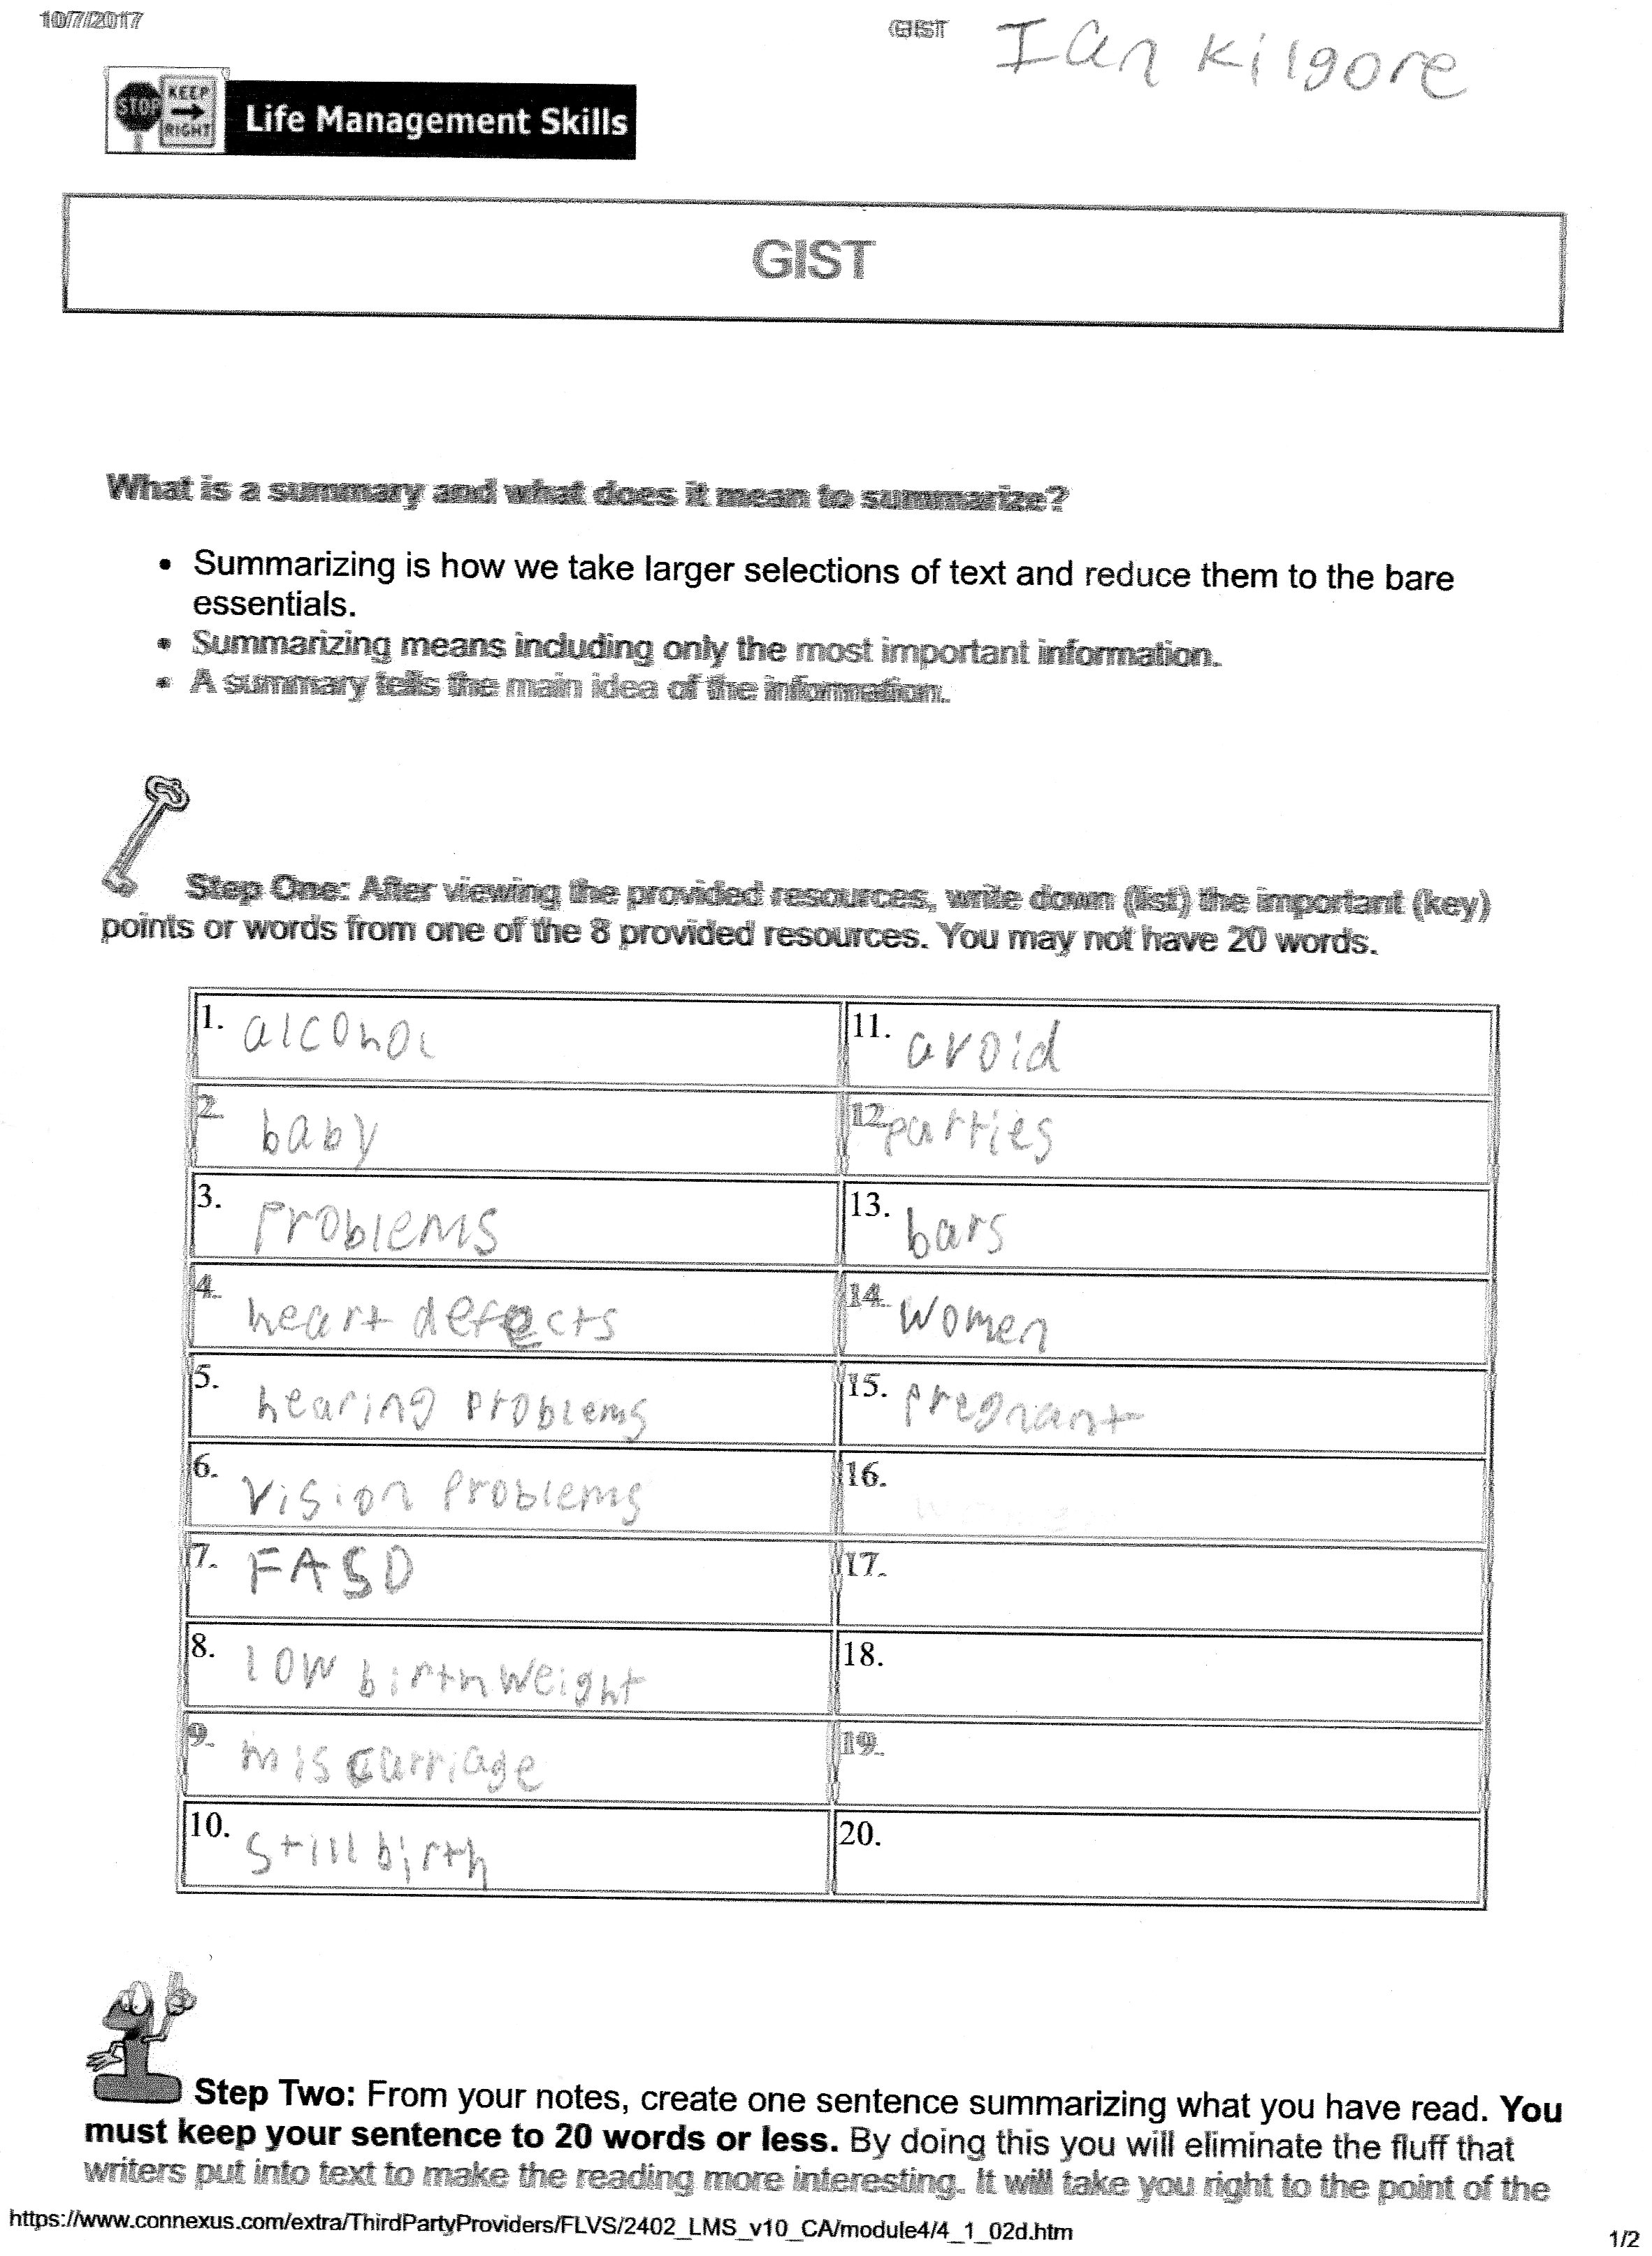 10/7/2017
GIST
Ian Kilgore
STOP
KEEP
RIGHT
Life Management Skills
GIST
What is a summary and what does it mean to summarize?
• Summarizing is how we take larger selections of text and reduce them to the bare
essentials.
• Summarizing means including only the most important information.
• A summary tells the main idea of the information.
Step One: After viewing the provided resources, write down (list) the important (key)
points or words from one of the 8 provided resources. You may not have 20 words.
1. alcohol
11. avoid
2. baby
12. parties
3. problems
13. bars
4. heart defects
14. women
5. hearing problems
15. pregnant
6. vision problems
16.
7. FASD
17.
8. low birth weight
18.
9. miscarriage
19.
10. still birth
20.
Step Two: From your notes, create one sentence summarizing what you have read. You
must keep your sentence to 20 words or less. By doing this you will eliminate the fluff that
writers put into text to make the reading more interesting. It will take you right to the point of the
https://www.connexus.com/extra/ThirdPartyProviders/FLVS/2402_LMS_v10_CA/module4/4_1_02d.htm
1/2